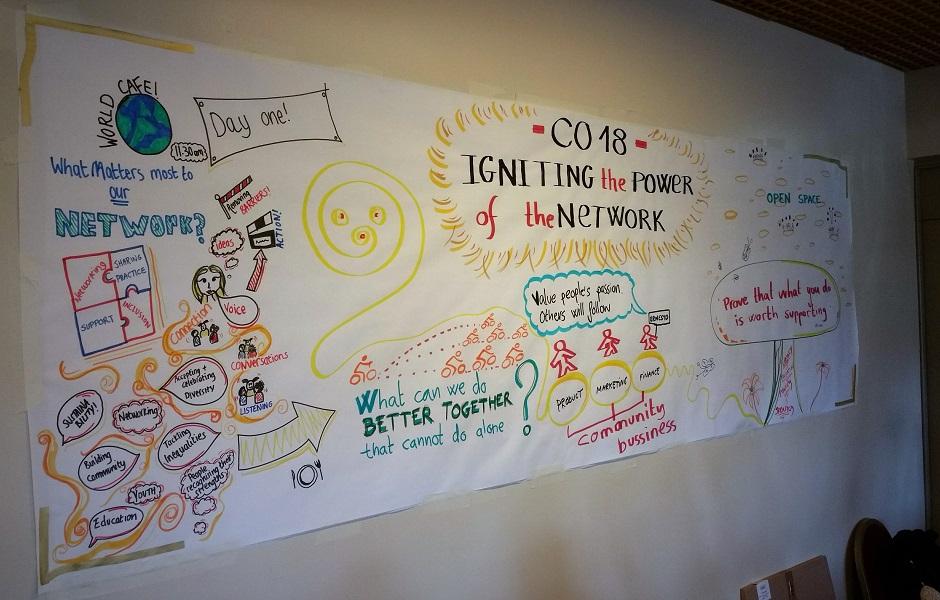 WORLD CAFE!
11:30am
Day one!
What Matters most to
our
NETWORK?
Removing
BARRIERS!
ACTION!
ideas
Networking
SHARING
PRACTICE
SUPPORT
INCLUSION
Voice
Connection
conversations
LISTENING
Accepting +
celebrating
Diversity
SUSTAINA
BILITY!
Networking
Tackling
Inequalities
Building
Community
People
recognizing their
strengths
YOUTH
Education
- CO18 -
IGNITING the POWER
of the NETWORK
Value people's passion.
Others will follow
What can we do
BETTER TOGETHER
that cannot do alone ?
PRODUCT
MARKETING
FINANCE
community
bussiness
OPEN SPACE
Prove that what you do
is worth supporting